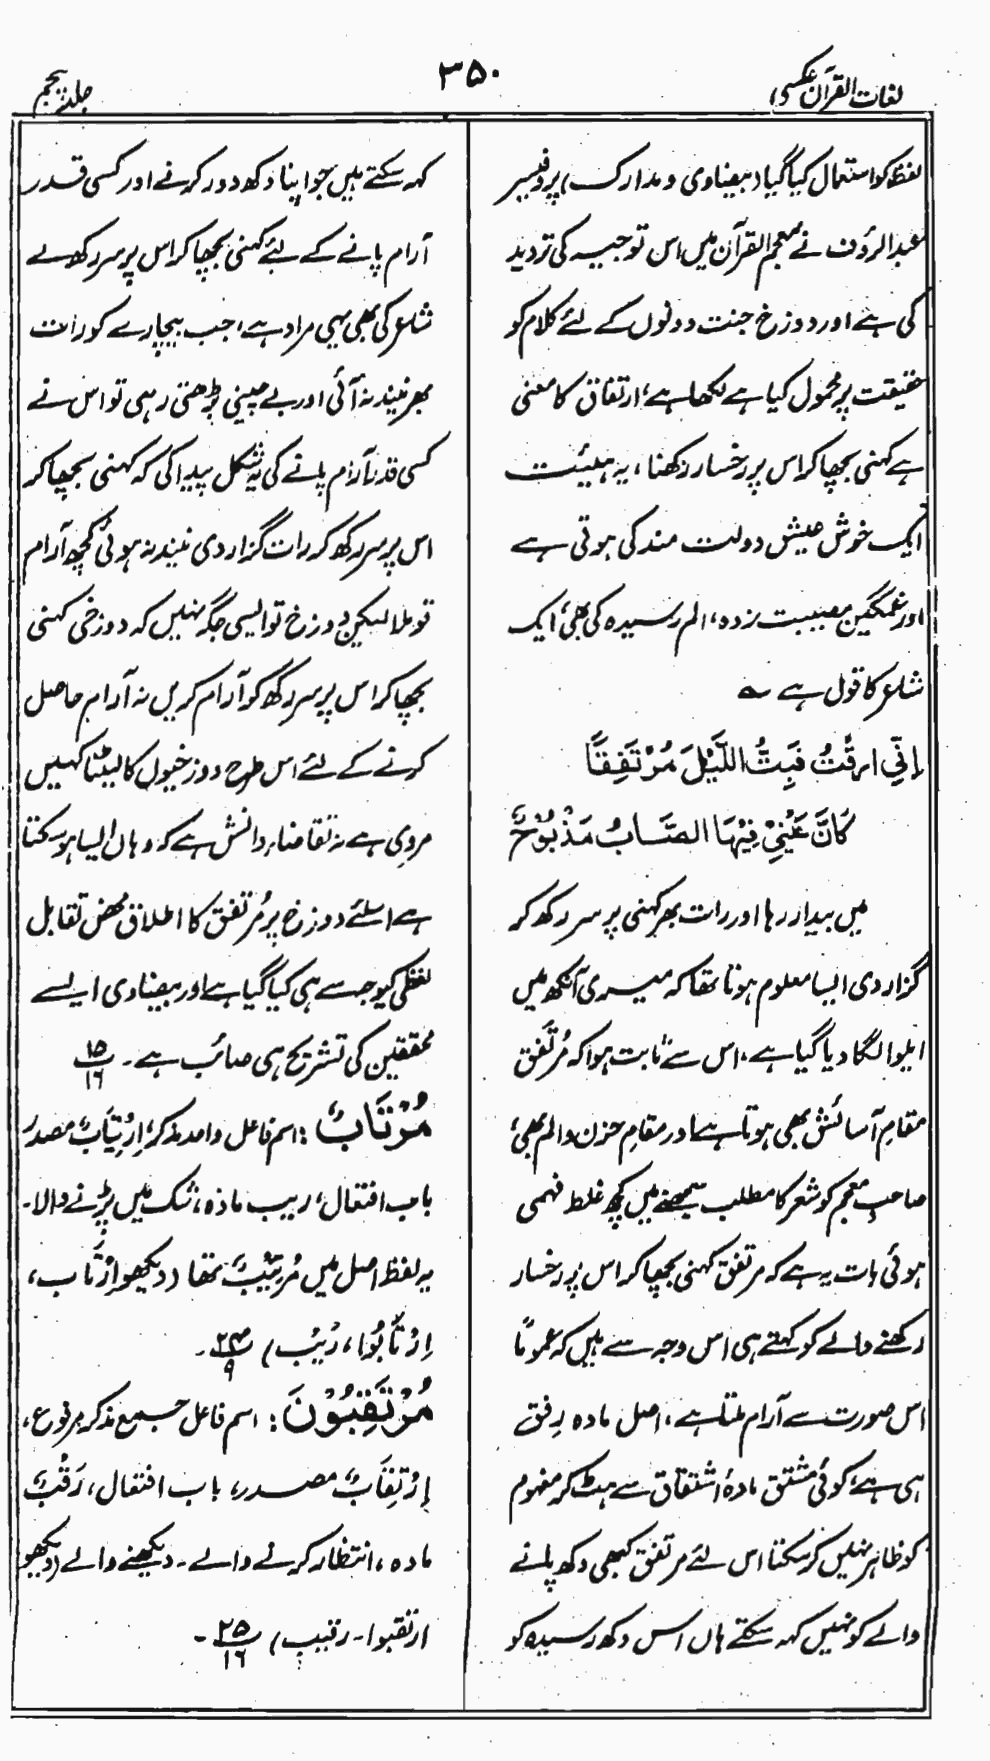 لغات القرآن عکسی
۳۵۰
جلد پنجم
لفظ کو استعمال کیا گیا (بیضاوی و مدارک) پروفیسر
عبدالرؤف نے معجم القرآن میں اس توجیہ کی تردید
کی ہے اور دوزخ جنت دونوں کے لئے کلام کو
حقیقت پر محمول کیا ہے لکھا ہے، ارتفاق کا معنی
ہے کہنی بچھا کر اس پر رخسار رکھنا، یہ ہیئت
ایک خوش عیش دولت مند کی ہوتی ہے
اور غمگین مصیبت زدہ، الم رسیدہ کی بھی، ایک
شاعر کا قول ہے ؎
اِنِّی ارِقْتُ فَبِتُّ اللَّیْلَ مُرْتَفِقًا
کَانَّ عَیْنِیْ فِیْہَا الصَّابُ مَذْبُوْحٌ
میں بیدار رہا اور رات بھر کہنی پر سر رکھ کر
گزار دی ایسا معلوم ہوتا تھا کہ میری آنکھ میں
ایلوا لگا دیا گیا ہے، اس سے ثابت ہوا کہ مُرتَفق
مقام آسائش بھی ہوتا ہے اور مقامِ حزن والم بھی،
صاحب معجم کو شعر کا مطلب سمجھنے میں کچھ غلط فہمی
ہوئی بات یہ ہے کہ مرتفق کہنی بچھا کر اس پر رخسار
رکھنے والے کو کہتے ہی اس وجہ سے ہیں کہ عموماً
اس صورت سے آرام ملتا ہے، اصل مادہ رِفق
ہی ہے، کوئی مشتق مادۂ اشتقاق سے ہٹ کر مفہوم
کو ظاہر نہیں کر سکتا اس لئے مرتفق کبھی دکھ پانے
والے کو نہیں کہہ سکتے ہاں اس دکھ رسیدہ کو
کہہ سکتے ہیں جو اپنا دکھ دور کرنے اور کسی قدر
آرام پانے کے لئے کہنی بچھا کر اس پر سر رکھ لے
شاعر کی بھی یہی مراد ہے، جب بیچارے کو رات
بھر نیند نہ آئی اور بے چینی بڑھتی رہی تو اس نے
کسی قدر آرام پانے کی یہ شکل پیدا کی کہ کہنی بچھا کر
اس پر سر رکھ کر رات گزار دی نیند نہ ہوئی کچھ آرام
تو ملا لیکن دوزخ تو ایسی جگہ نہیں کہ دوزخی کہنی
بچھا کر اس پر سر رکھ کو آرام کریں نہ آرام حاصل
کرنے کے لئے اس طرح دوزخیوں کا لیٹنا کہیں
مروی ہے نہ تقاضاء دانش ہے کہ وہاں ایسا ہو سکتا
ہے اسلئے دوزخ پر مُرتفق کا اطلاق محض تقابل
لفظی کیوجہ سے ہی کیا گیا ہے اور بیضاوی ایسے
محققین کی تشریح ہی صائب ہے۔ ۱۵/۱۶
مُرْتَابٌ: اسم فاعل واحد مذکر، اِرْتِیَابٌ مصدر
باب افتعال، ریب مادہ، شک میں پڑنے والا۔
یہ لفظ اصل میں مُرْتَیِبٌ تھا (دیکھو اِرْتَاب،
اِرْتَابُوا، رَیْب) ۲۴/۹۔
مُرْتَقِبُوْنَ: اسم فاعل جمع مذکر مرفوع،
اِرْتِقَابٌ مصدر، باب افتعال، رَقْبٌ
مادہ، انتظار کرنے والے۔ دیکھنے والے (دیکھو
ارتقبوا۔ رقیب) ۲۵/۱۶۔